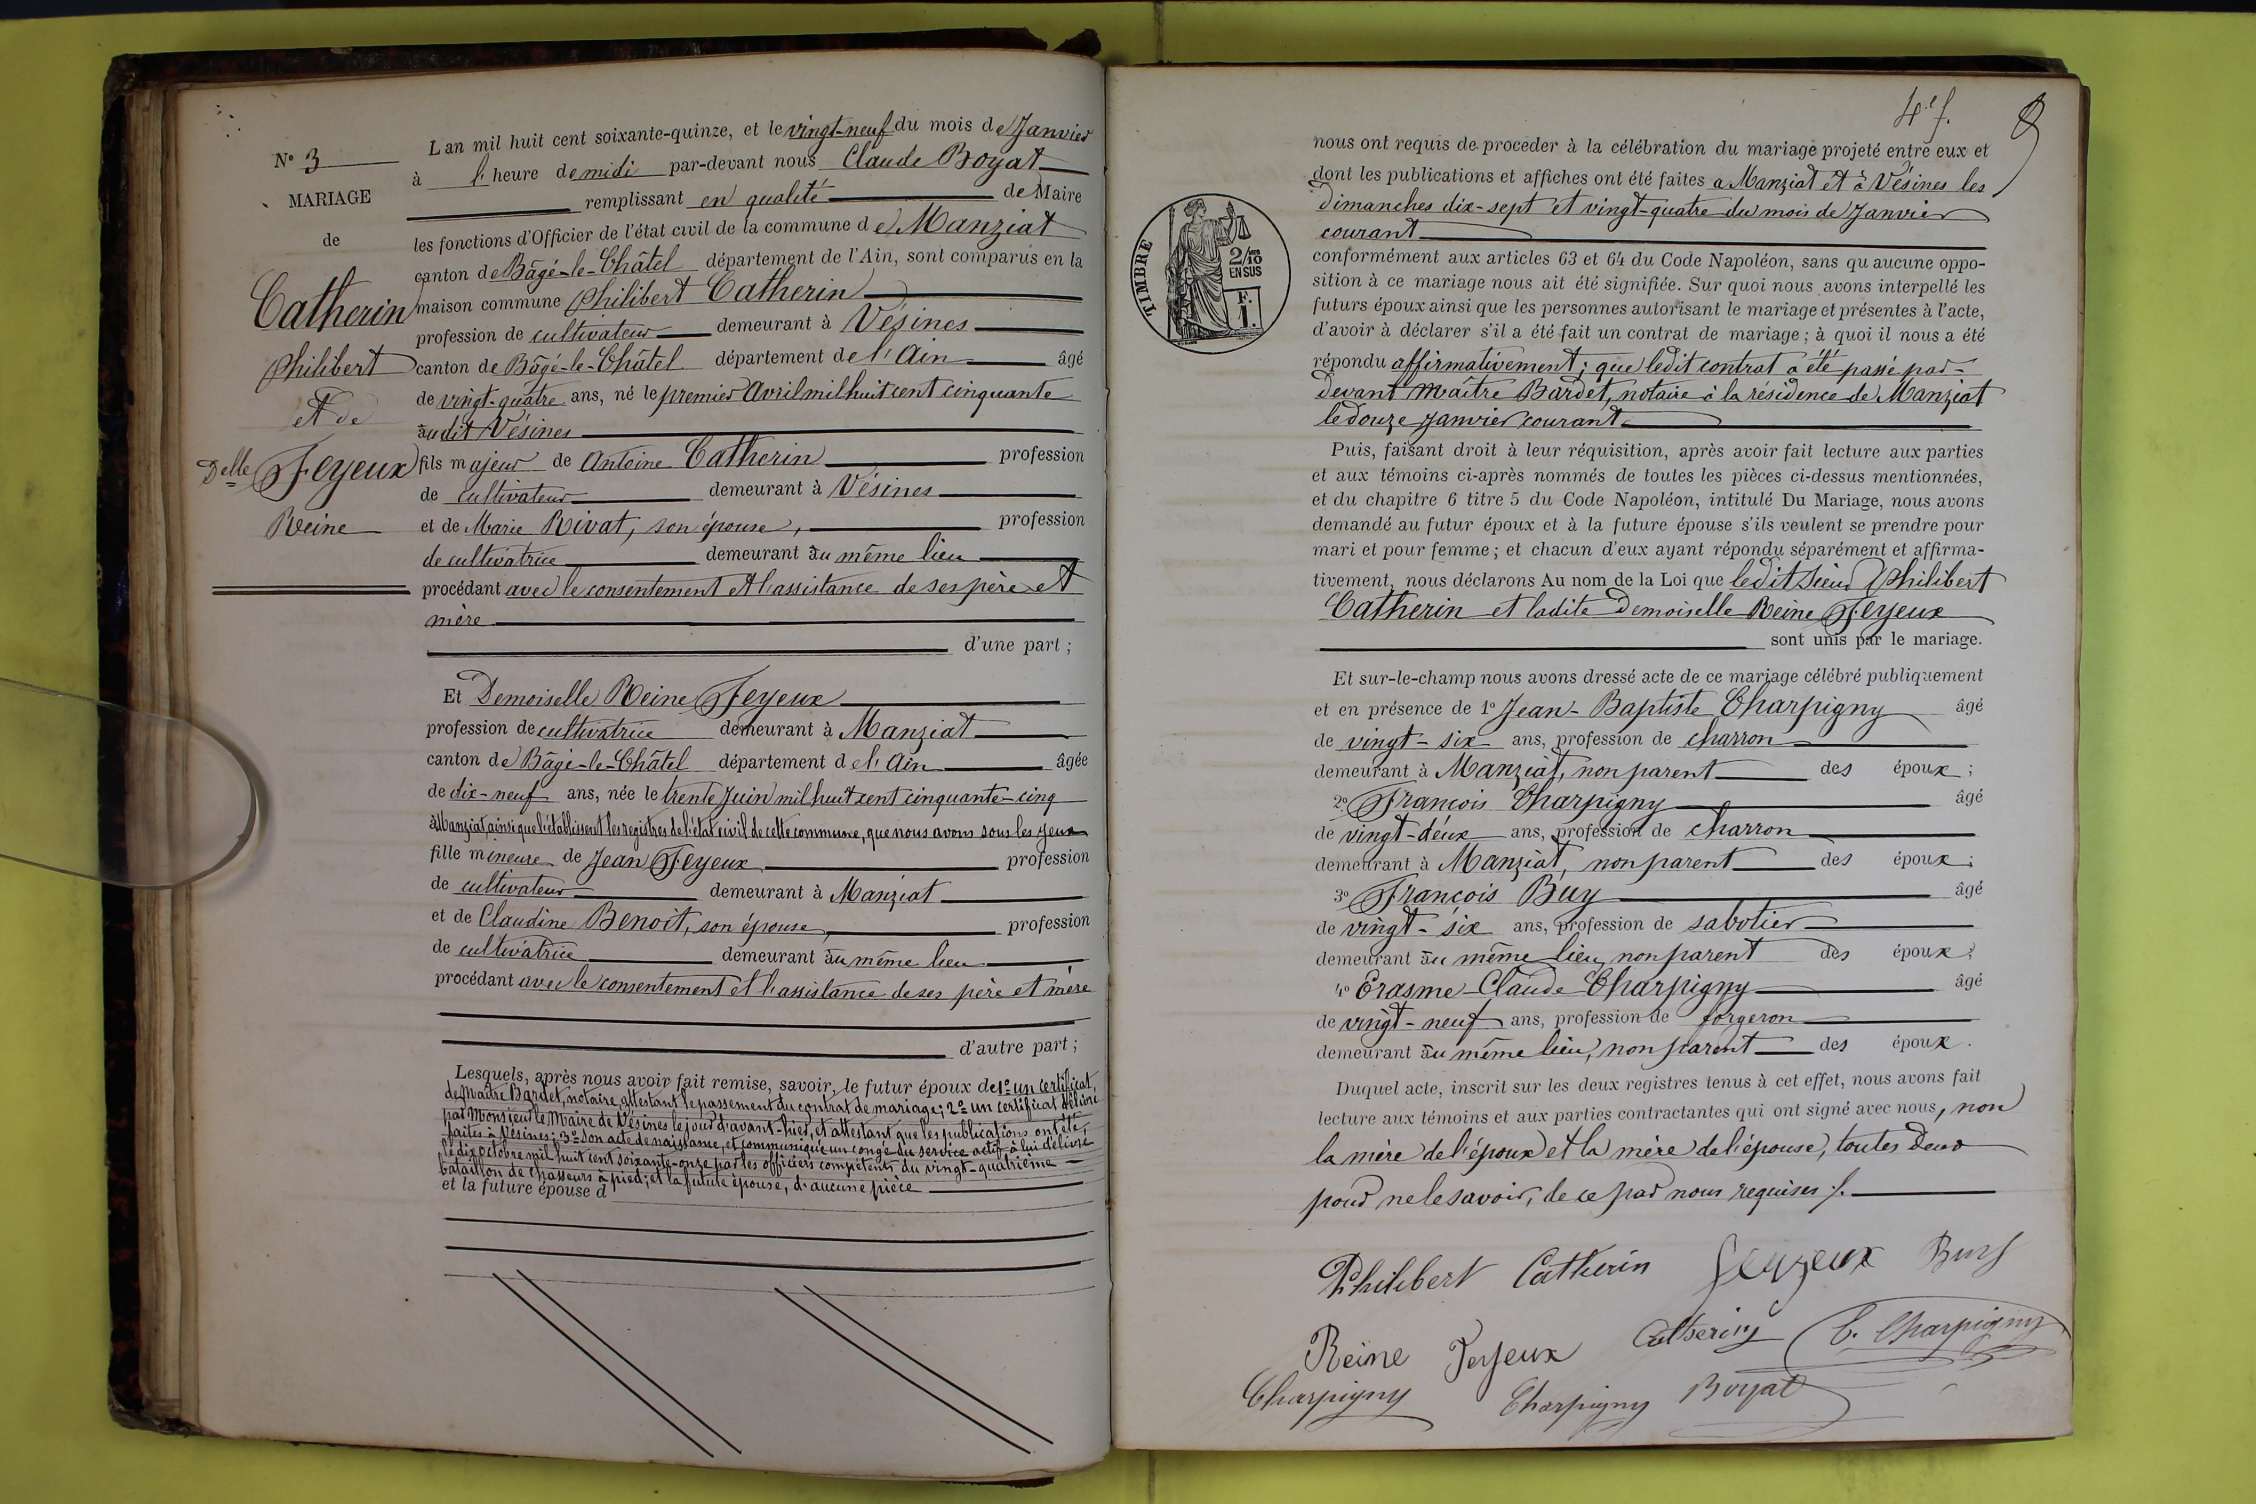 N° 3
MARIAGE
de
Catherin
Philibert
et de
Delle Feyeux
Reine
L'an mil huit cent soixante-quinze, et le vingt-neuf du mois de Janvier
à l'heure de midi par-devant nous Claude Boyat
remplissant en qualité de Maire
les fonctions d'Officier de l'état civil de la commune de Manziat
canton de Bâgé-le-Châtel département de l'Ain, sont comparus en la
maison commune Philibert Catherin
profession de cultivateur demeurant à Vésines
canton de Bâgé-le-Châtel département de l'Ain âgé
de vingt-quatre ans, né le premier Avril mil huit cent cinquante
audit Vésines
fils majeur de Antoine Catherin profession
de cultivateur demeurant à Vésines
et de Marie Rivat, son épouse, profession
de cultivatrice demeurant au même lieu
procédant avec le consentement et l'assistance de ses père et
mère
d'une part ;
Et Demoiselle Reine Feyeux
profession de cultivatrice demeurant à Manziat
canton de Bâgé-le-Châtel département de l'Ain âgée
de dix-neuf ans, née le trente Juin mil huit cent cinquante-cinq
à Manziat, ainsi que l'établissent les registres de l'état civil de cette commune, que nous avons sous les yeux
fille mineure de Jean Feyeux profession
de cultivateur demeurant à Manziat
et de Claudine Benoit, son épouse, profession
de cultivatrice demeurant au même lieu
procédant avec le consentement et l'assistance de ses père et mère
d'autre part ;
Lesquels, après nous avoir fait remise, savoir, le futur époux de 1° un certificat,
de Maître Bardet, notaire, attestant le passement du contrat de mariage; 2° un certificat délivré
par Monsieur le Maire de Vésines le jour d'avant-hier, et attestant que les publications ont été
faites à Vésines; 3° son acte de naissance, et communiqué un congé du service actif à lui délivré
le dix octobre mil huit cent soixante-onze par les officiers compétents du vingt-quatrième
bataillon de chasseurs à pied; et la future épouse, d'aucune pièce
et la future épouse d
4e f.
nous ont requis de procéder à la célébration du mariage projeté entre eux et
dont les publications et affiches ont été faites à Manziat et à Vésines les
Dimanches dix-sept et vingt-quatre du mois de Janvier
courant
TIMBRE
2/10
EN SUS
F.
1.
conformément aux articles 63 et 64 du Code Napoléon, sans qu'aucune oppo-
sition à ce mariage nous ait été signifiée. Sur quoi nous avons interpellé les
futurs époux ainsi que les personnes autorisant le mariage et présentes à l'acte,
d'avoir à déclarer s'il a été fait un contrat de mariage ; à quoi il nous a été
répondu affirmativement; que ledit contrat a été passé par-
devant Maître Bardet, notaire à la résidence de Manziat
le douze janvier courant
Puis, faisant droit à leur réquisition, après avoir fait lecture aux parties
et aux témoins ci-après nommés de toutes les pièces ci-dessus mentionnées,
et du chapitre 6 titre 5 du Code Napoléon, intitulé Du Mariage, nous avons
demandé au futur époux et à la future épouse s'ils veulent se prendre pour
mari et pour femme ; et chacun d'eux ayant répondu séparément et affirma-
tivement, nous déclarons Au nom de la Loi que ledit Sieur Philibert
Catherin et ladite Demoiselle Reine Feyeux
sont unis par le mariage.
Et sur-le-champ nous avons dressé acte de ce mariage célébré publiquement
et en présence de 1° Jean-Baptiste Charpigny âgé
de vingt-six ans, profession de charron
demeurant à Manziat, non parent des époux ;
2° François Charpigny âgé
de vingt-deux ans, profession de charron
demeurant à Manziat, non parent des époux ;
3° François Buy âgé
de vingt-six ans, profession de sabotier
demeurant au même lieu, non parent des époux ;
4° Erasme-Claude Charpigny âgé
de vingt-neuf ans, profession de forgeron
demeurant au même lieu, non parent des époux.
Duquel acte, inscrit sur les deux registres tenus à cet effet, nous avons fait
lecture aux témoins et aux parties contractantes qui ont signé avec nous, non
la mère de l'époux et la mère de l'épouse, toutes deux
pour ne le savoir, de ce par nous requises ./.
Philibert Catherin Feyeux Buy
Reine Feyeux Catherin C. Charpigny
Charpigny Charpigny Boyat